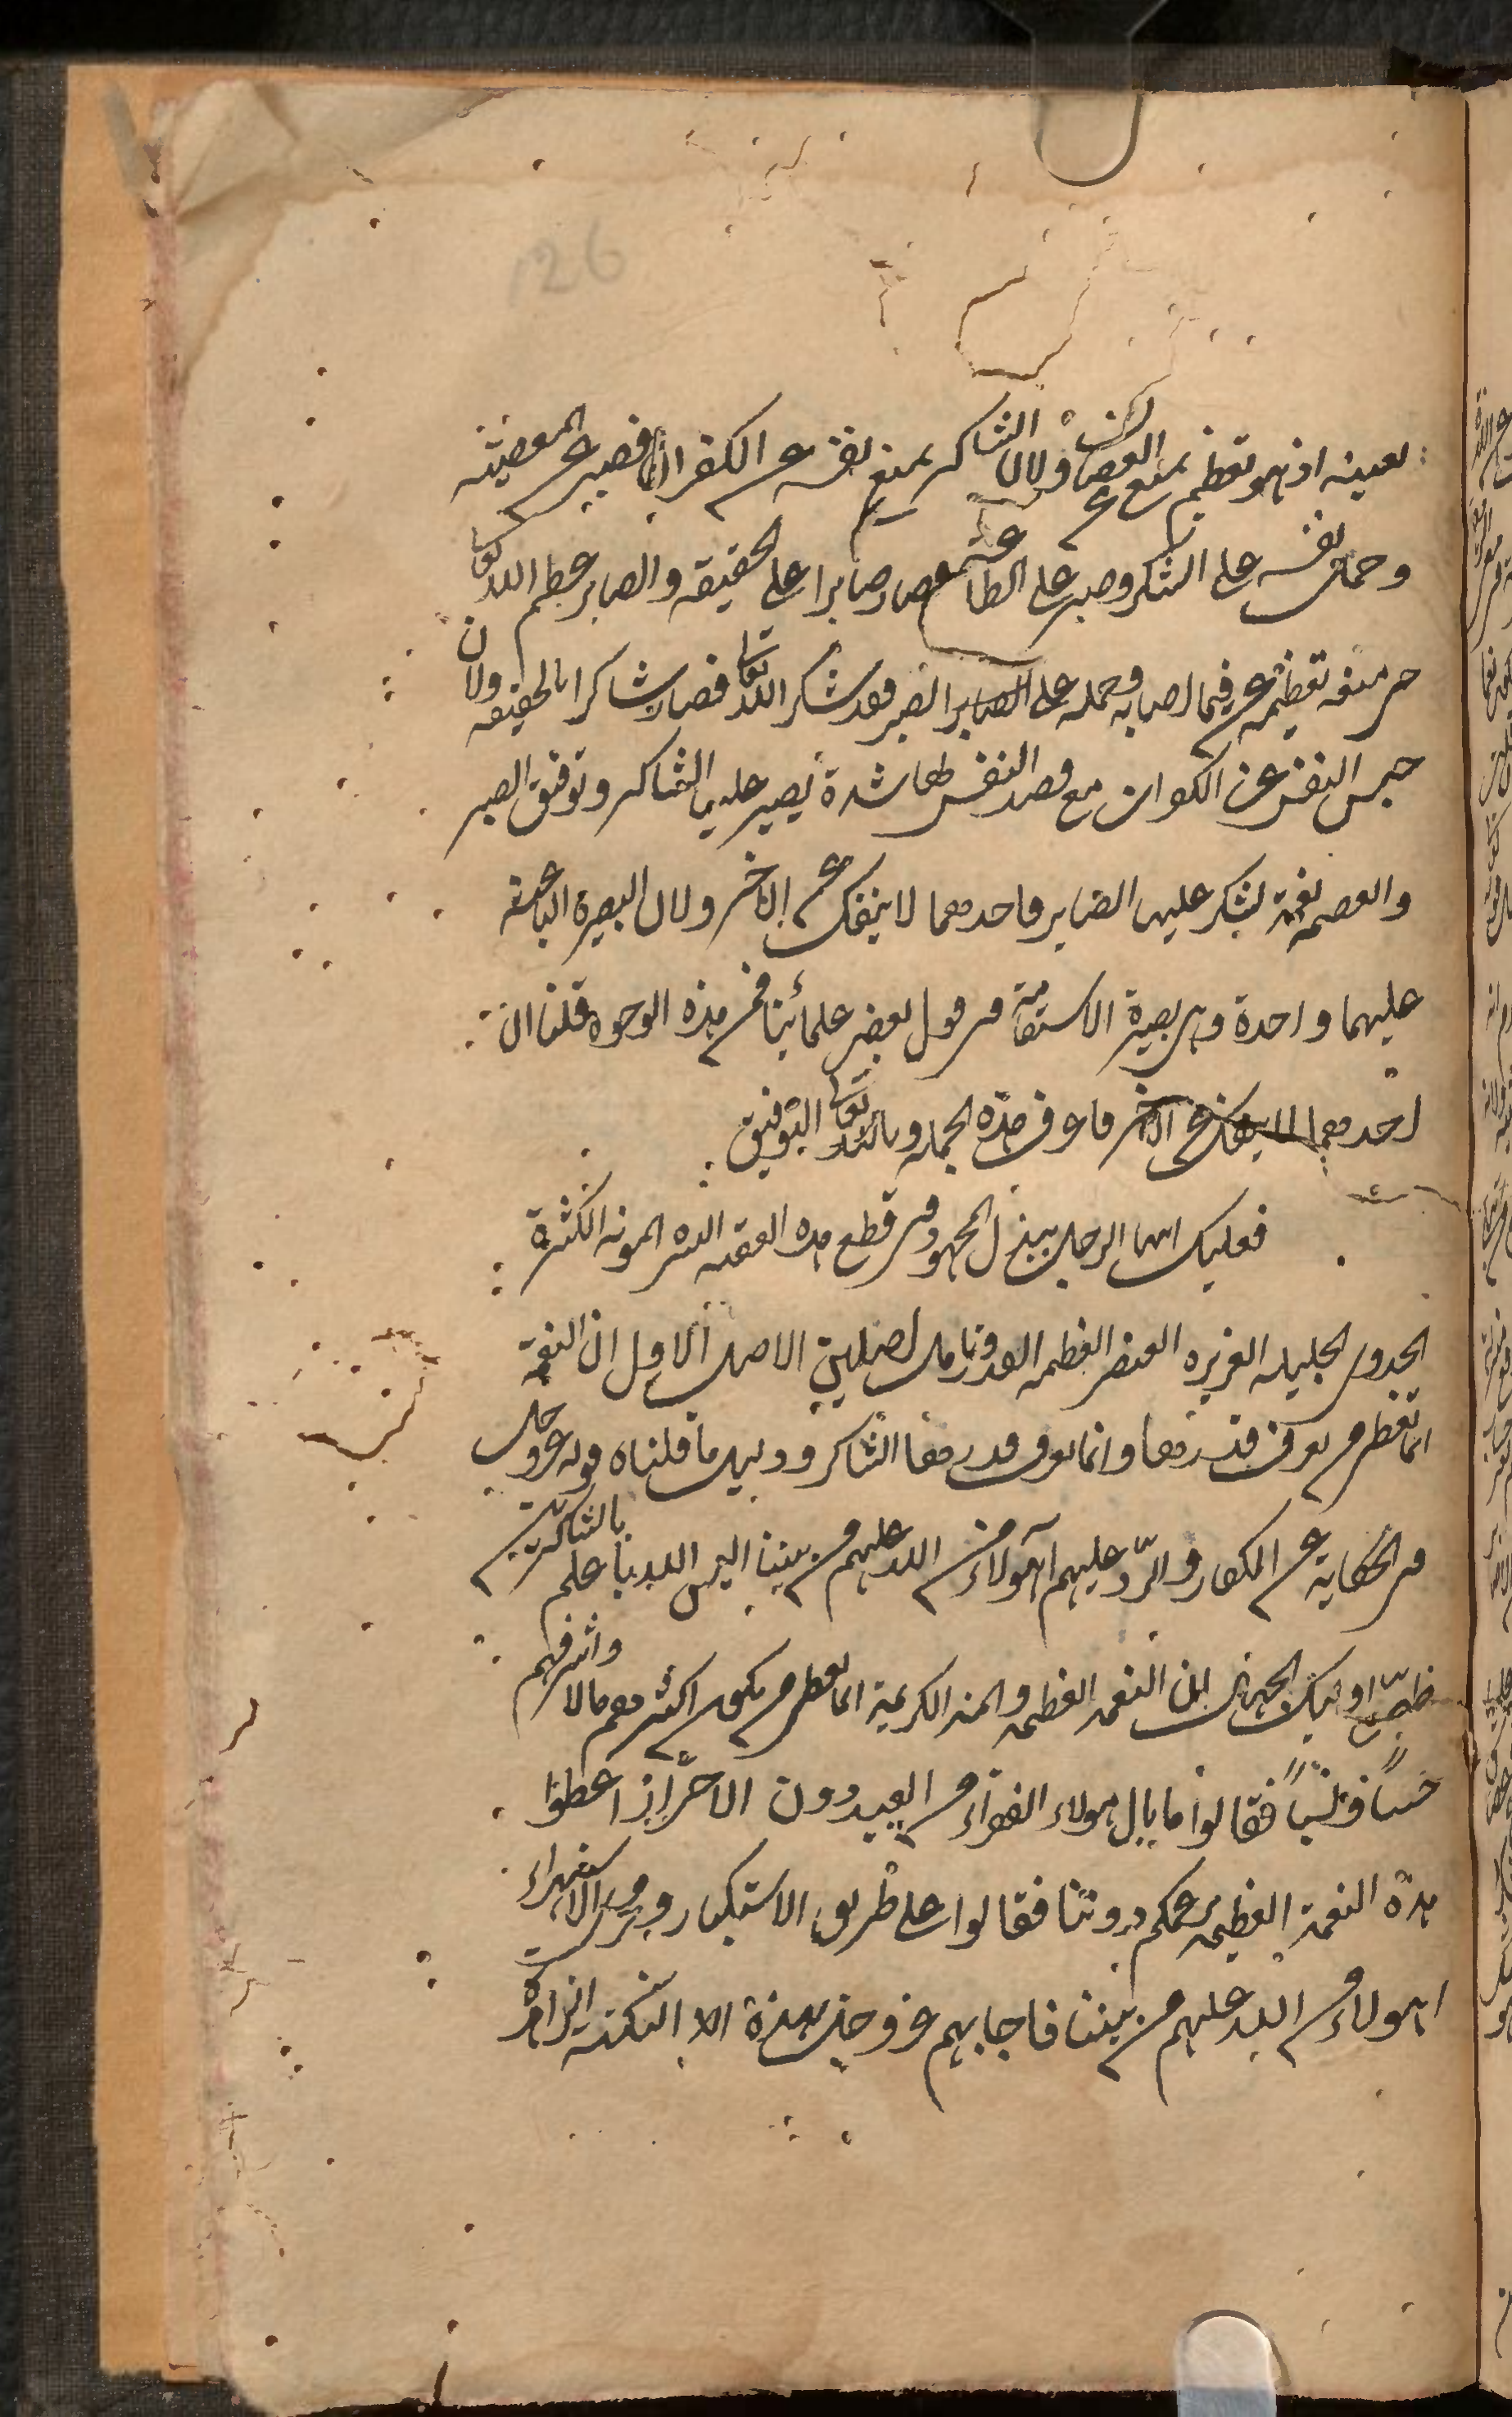 126
بعينه اذ هو تعظيم يمنع عن العصيان ولان الشاكر يمنع نفسه عن الكفران فصبر عن المعصية
وحمل نفسه على الشكر وصبر على الطاعة فصار صابرا على الحقيقة والصابر عظم الله تعالى
حتى منعه تعظيمه عن فيما اصابه وحمله على الصابر الصبر فقد شكر الله تعالى فصار شاكرا بالحقيقة ولان
حبس النفس عن الكفران مع قصد النفس لها شدة يصبر عليها الشاكر وتوفيق الصبر
والعصمة نعمة يشكر عليها الصابر فاحدهما لا ينفك عن الاخر ولان البصيرة الباعثة
عليهما واحدة وهي بصيرة الاستقامة في قول بعض علمائنا فمن هذه الوجوه قلنا ان
احدهما لا ينفك عن الاخر فاعرف هذه الجملة وبالله تعالى التوفيق
فعليك ايها الرجل ببذل المجهود في قطع هذه العقبة اليسير المونة الكثيرة
الجدوى الجليلة العزيزة العنصر العظيمة القدر وتامل اصلين الاصل الاول ان النعمة
انما تعطى من يعرف قدرها وانما يعرف قدرها الشاكر ودليل ما قلناه قوله عز وجل
في الحكاية عن الكفار والرد عليهم اهولاء من الله عليهم من بيننا اليس الله باعلم بالشاكرين
ظن اوليك الجهال ان النعمة العظيمة والمنة الكريمة انما تعطى من يكون اكثرهم مالا واشرفهم
حسبا ونسبا فقالوا ما بال هولاء الفقراء من العبيد دون الاحرار اعطوا
هذه النعمة العظيمة بزعمكم دوننا فقالوا على طريق الاستكبار ومجرى الاستهزاء
اهولاء من الله عليهم من بيننا فاجابهم عز وجل بهذه الا النكتة الزاهرة